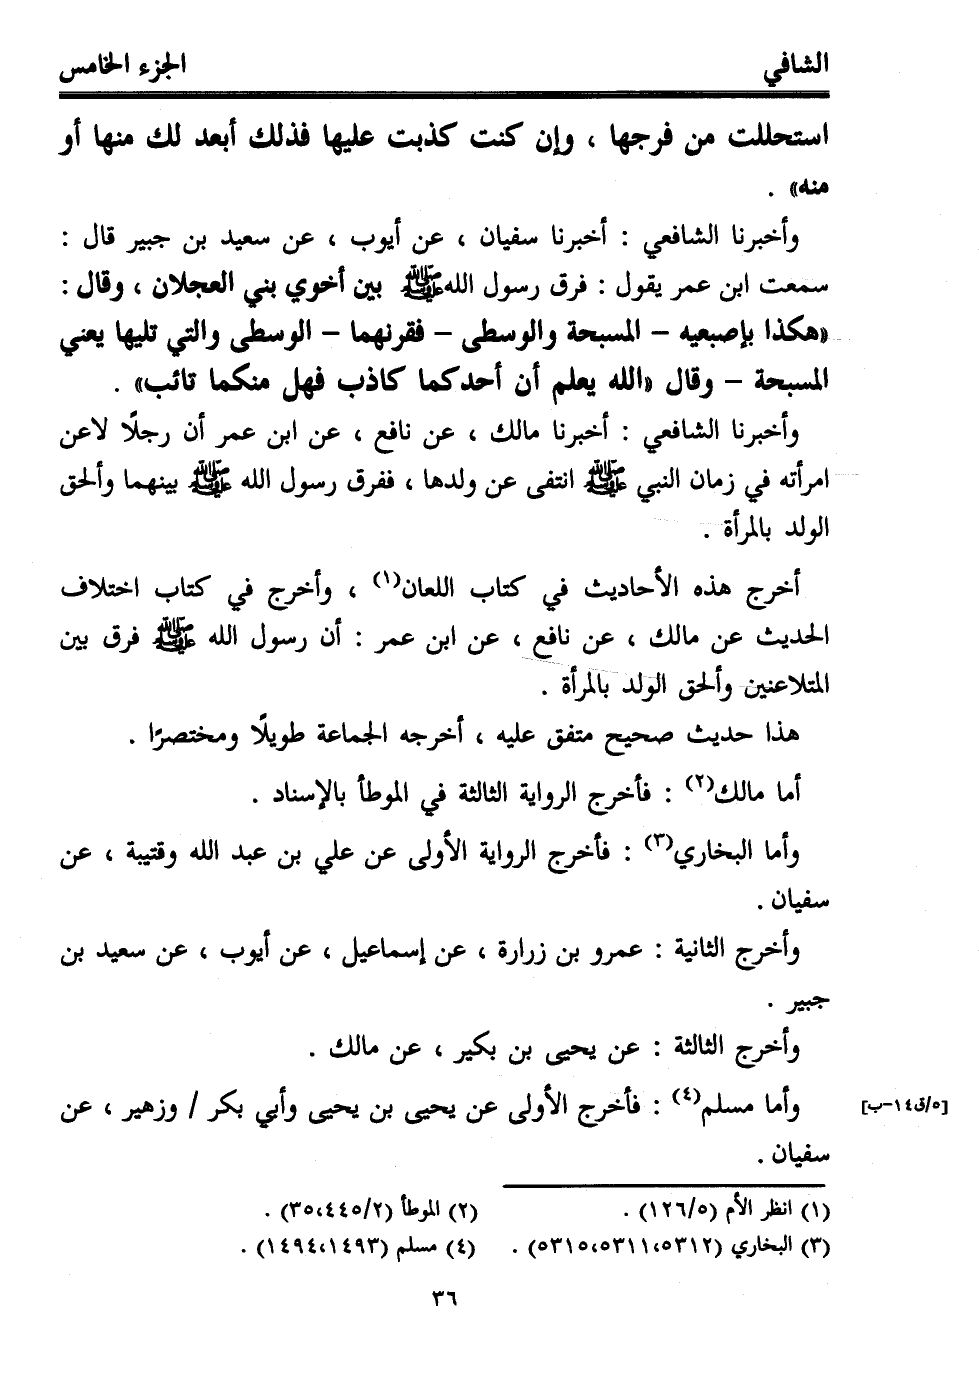 الشافي الجزء الخامس
استحللت من فرجها ، وإن كنت كذبت عليها فذلك أبعد لك منها أو
منه» .
وأخبرنا الشافعي : أخبرنا سفيان ، عن أيوب ، عن سعيد بن جبير قال :
سمعت ابن عمر يقول : فرق رسول الله ﷺ بين أخوي بني العجلان ، وقال :
«هكذا بإصبعيه – المسبحة والوسطى – فقرنهما – الوسطى والتي تليها يعني
المسبحة – وقال «الله يعلم أن أحدكما كاذب فهل منكما تائب» .
وأخبرنا الشافعي : أخبرنا مالك ، عن نافع ، عن ابن عمر أن رجلًا لاعن
امرأته في زمان النبي ﷺ انتفى عن ولدها ، ففرق رسول الله ﷺ بينهما وألحق
الولد بالمرأة .
أخرج هذه الأحاديث في كتاب اللعان(١) ، وأخرج في كتاب اختلاف
الحديث عن مالك ، عن نافع ، عن ابن عمر : أن رسول الله ﷺ فرق بين
المتلاعنين وألحق الولد بالمرأة .
هذا حديث صحيح متفق عليه ، أخرجه الجماعة طويلًا ومختصرًا .
أما مالك(٢) : فأخرج الرواية الثالثة في الموطأ بالإسناد .
وأما البخاري(٣) : فأخرج الرواية الأولى عن علي بن عبد الله وقتيبة ، عن
سفيان .
وأخرج الثانية : عمرو بن زرارة ، عن إسماعيل ، عن أيوب ، عن سعيد بن
جبير .
وأخرج الثالثة : عن يحيى بن بكير ، عن مالك .
وأما مسلم(٤) : فأخرج الأولى عن يحيى بن يحيى وأبي بكر / وزهير ، عن [٥/ق١٤-ب]
سفيان .
(١) انظر الأم (١٢٦/٥) . (٢) الموطأ (٣٥،٤٤٥/٢) .
(٣) البخاري (٥٣١٥،٥٣١١،٥٣١٢) . (٤) مسلم (١٤٩٤،١٤٩٣) .
٣٦